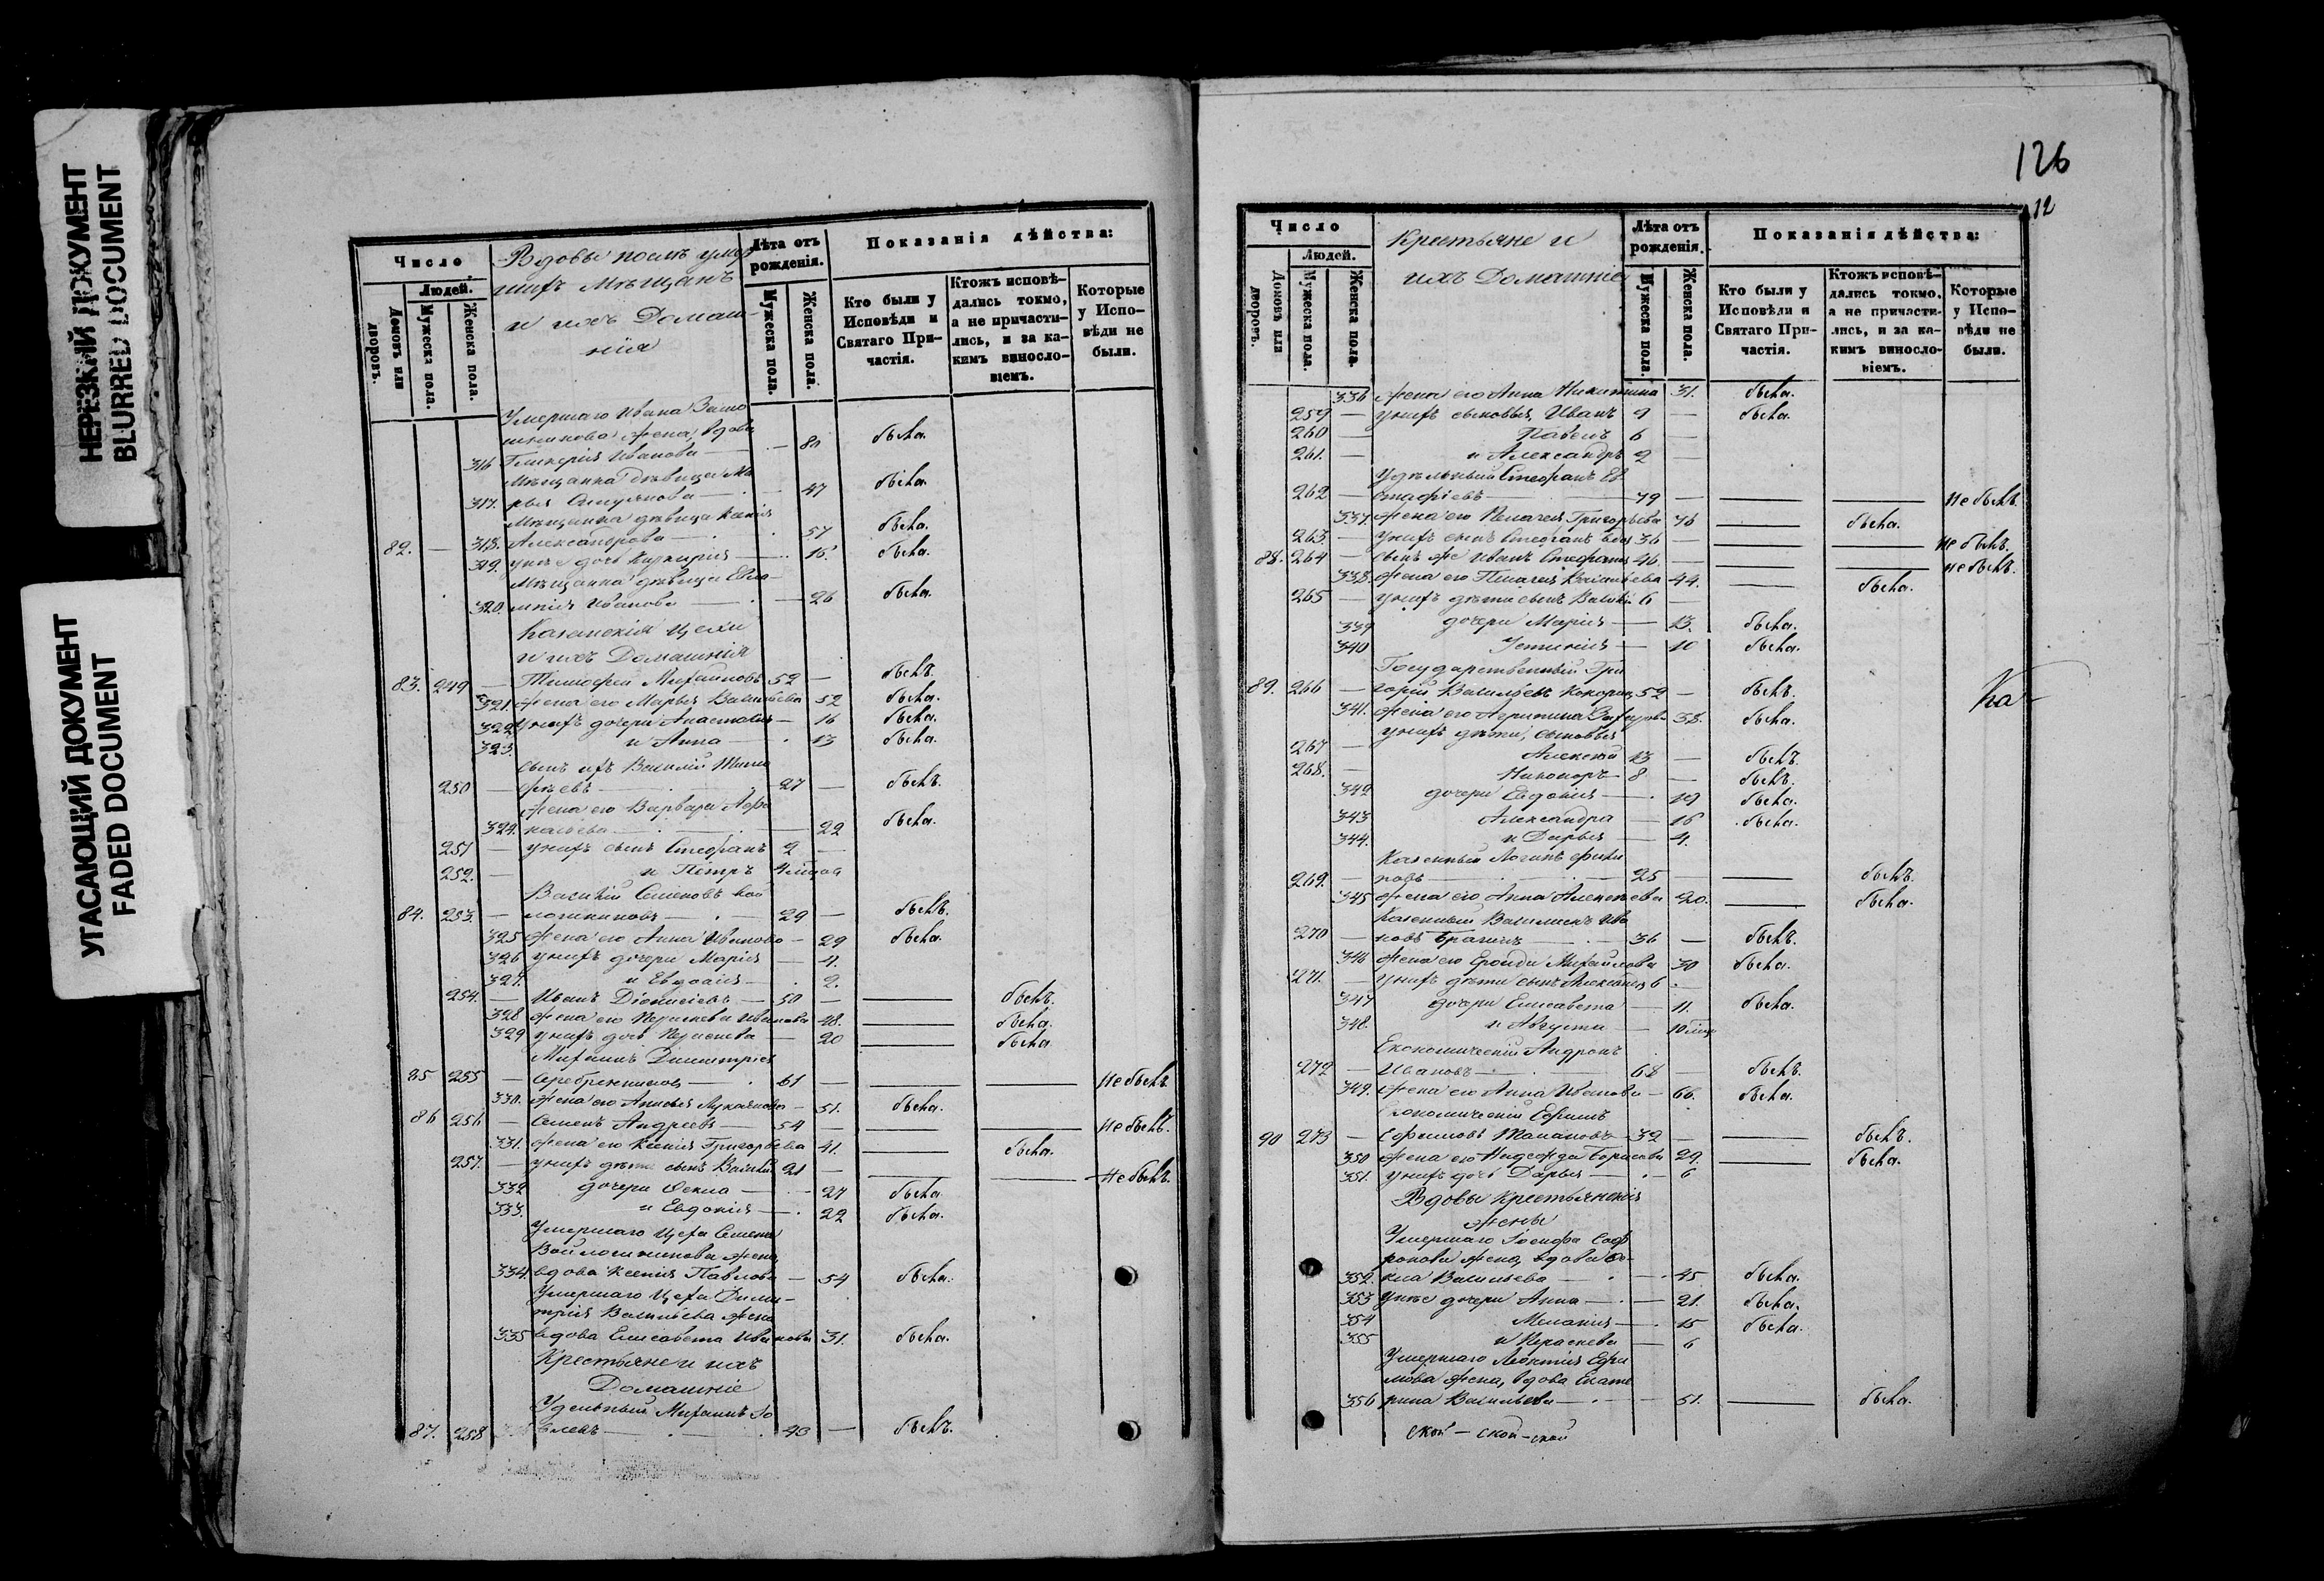 НЕРЕЗКИЙ ДОКУМЕНТ
BLURRED DOCUMENT
УГАСАЮЩИЙ ДОКУМЕНТ
FADED DOCUMENT
Число
Людей.
Домовъ или дворовъ.
Мужеска пола.
Женска пола.
Вдовы послѣ умер
шихъ Мѣщанъ
и ихъ Домаш-
нія
Лѣта отъ рожденія.
Мужеска пола.
Женска пола.
Показанія дѣйства:
Кто были у Исповѣди и Святаго При-частія.
Ктожъ исповѣ-дались токмо, а не причасти-лись, и за ка-кимъ винословіемъ.
Которые у Испо-вѣди не были.
Умершаго Ивана
жена, вдова
316 Гликерія Иванова — 80 была.
Мѣщанка дѣвица Ма
317. рья — 47 была.
Мѣщанка дѣвица Ксенія
82. — 318. Александрова — 57 была.
319. у нее дочь — 15. была.
Мѣщанка дѣвица Евла-
320. мпія Иванова — 26 была.
Казанскія Цехи
и ихъ Домашнія
83. 249 — Тимофей Михайловъ 52 — былъ.
321. жена его Марья Васильева 52 была.
322 у нихъ дочери Анастасія — 16 была.
323. и Анна — 13 была.
сынъ ихъ Василій Тимо
250 — фѣевъ — 27 — былъ.
жена его Варвара Афа
324. насьева — 22 была.
251 — у нихъ сынъ Стефанъ 2 —
252. — и Петръ
Василій Семеновъ Вой
84. 253. — лошниковъ — 29 — былъ.
325 жена его Анна Иванова — 29 была.
326 у нихъ дочери Марія — 4.
327. и Евдокія — 2.
254. — Иванъ Діонисіевъ — 50 — былъ.
328 жена его Параскева Иванова 48. была.
329 у нихъ дочь Параскева — 20 была
Михаилъ Димитріев
85 255 — Серебренниковъ — 61 — Не былъ.
330. жена его Анисья Лукьянова — 51. была.
86 256 — Семенъ Андреевъ — 54 — Не былъ.
331. жена его Ксенія Григорьева 41. была.
257. — у нихъ дѣти сынъ Василій 21 — Не былъ.
332 дочери Фекла — 24 была
333. и Евдокія — 22 была.
Умершаго Цеха Семена
Войлошникова жена,
334. вдова Ксенія Павлова — 54 была.
Умершаго Цеха Дими-
трія Васильева жена
335 вдова Елисавета Иванова 31. была.
Крестьяне и ихъ
Домашніе
Удельный Михаилъ Іо
87. 258 влевъ — 40 — былъ.
126
12
Число
Людей.
Домовъ или дворовъ.
Мужеска пола.
Женска пола.
Крестьяне и
ихъ Домашніе
Лѣта отъ рожденія.
Мужеска пола.
Женска пола.
Показанія дѣйства:
Кто были у Исповѣди и Святаго При-частія.
Ктожъ исповѣ-дались токмо, а не причасти-лись, и за ка-кимъ винословіемъ.
Которые у Испо-вѣди не были.
336 жена его Анна Никитина 31. была.
259 — у нихъ сыновья, Иванъ 9 — была.
260 — Павелъ 6 —
261. — и Александръ 2 —
Удѣльный Стефанъ Ев
262 — стафіевъ — 79 — Не былъ.
337. жена его Пелагея Григорьева 76 была.
263. — у нихъ сынъ Стефанъ 36 — не былъ.
88. 264 — сынъ же Иванъ Стефановъ 46. — не былъ.
338. жена его Пелагея Васильева 44. была.
265 — у нихъ дѣти сынъ Василій 6 —
339 дочери Марія — 13. была.
340 Устинія — 10 была.
Государственный Гри
89. 266 — горій Васильевъ Кокорин 52 — былъ.
Ка-
341. жена его Агрипина Захарова 38. была.
у нихъ дѣти, сыновья
267 — Алексѣй 13 — былъ.
268. — Никоноръ — 8 — былъ.
342 дочери Евдокія — 19 была.
343 Александра — 16 была.
344. и Дарья — 4.
Казенный Логинъ Фили
269. — повъ — 25 былъ.
345 жена его Анна Алексеева 20. была.
Казенный Василискъ Ива
270 — новъ Брагинъ — 36 — былъ.
346 жена его Михайлова 30 была.
271. — у нихъ дѣти сынъ Алексѣй 6 —
347 дочери Елисавета — 11. была.
348. и Августа — 10 мѣся
Економическій Андронъ
272 — Ивановъ — 68 — былъ.
349. жена его Анна Иванова — 66. была.
Економическій Ефимъ
90 273 — Ефимовъ — 32 — былъ.
350 жена его Надежда Борисова 29. была.
351. у нихъ дочь Дарья — 6
Вдовы Крестьянскія
жены
Умершаго Іосифа Соф
ронова жена, вдова Фе-
352. кла Васильева — 45 была.
353 у нее дочери Анна — 21. была.
354 Меланія — 15 была.
355 и Параскева — 6
Умершаго Леонтія Ефи
мова жена, вдова Екате
356 рина Васильева — 51. была.
ской — ской — ской